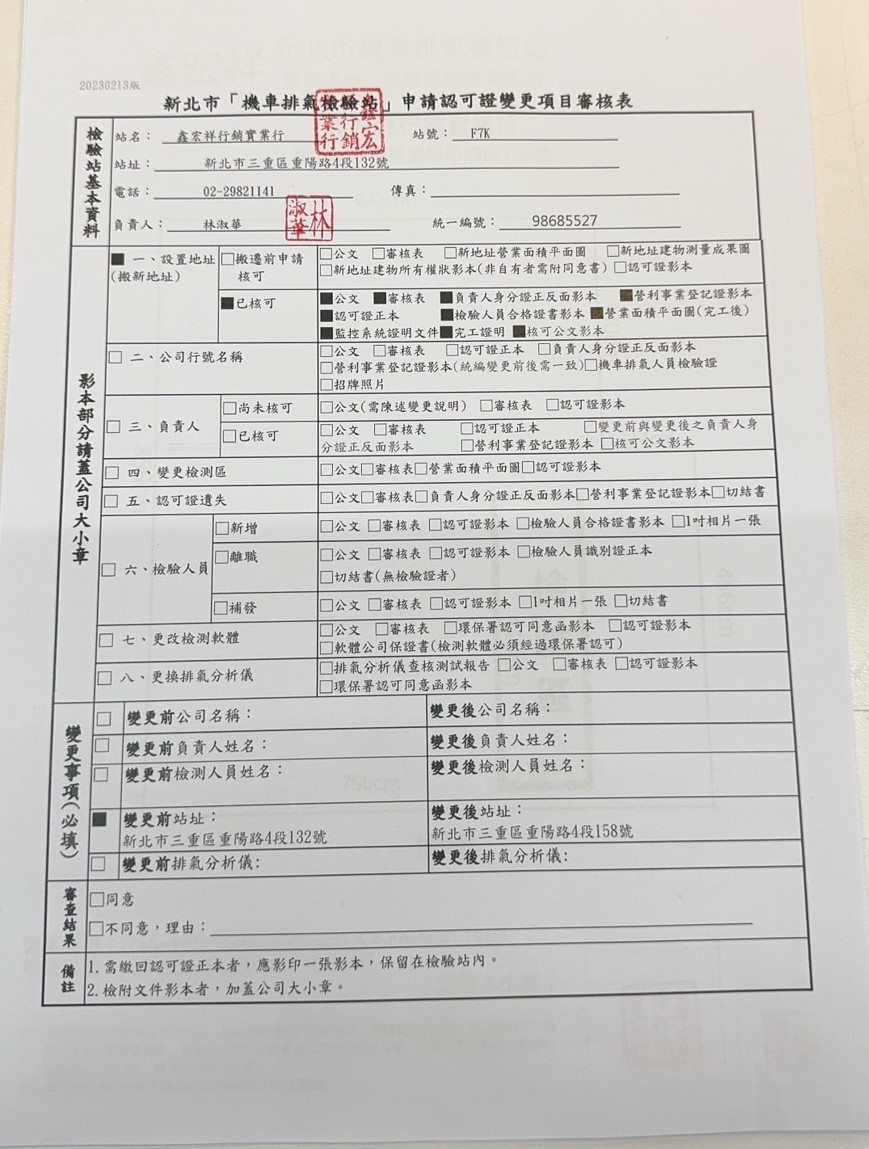 20230213版
新北市「機車排氣檢驗站」申請認可證變更項目審核表
檢驗站基本資料
站名： 鑫宏祥行銷實業行 站號： F7K
站址： 新北市三重區重陽路4段132號
電話： 02-29821141 傳真：
負責人： 林淑華 統一編號： 98685527
林淑華
影本部分請蓋公司大小章
■ 一、設置地址(搬新地址)
□搬遷前申請核可
□公文 □審核表 □新地址營業面積平面圖 □新地址建物測量成果圖
□新地址建物所有權狀影本(非自有者需附同意書) □認可證影本
■已核可
■公文 ■審核表 ■負責人身分證正反面影本 ■營利事業登記證影本
■認可證正本 ■檢驗人員合格證書影本 ■營業面積平面圖(完工後)
■監控系統證明文件■完工證明 ■核可公文影本
□ 二、公司行號名稱
□公文 □審核表 □認可證正本 □負責人身分證正反面影本
□營利事業登記證影本(統編變更前後需一致)□機車排氣人員檢驗證
□招牌照片
□ 三、負責人
□尚未核可
□公文(需陳述變更說明) □審核表 □認可證影本
□已核可
□公文 □審核表 □認可證正本 □變更前與變更後之負責人身
分證正反面影本 □營利事業登記證影本 □核可公文影本
□ 四、變更檢測區
□公文□審核表□營業面積平面圖□認可證影本
□ 五、認可證遺失
□公文□審核表□負責人身分證正反面影本□營利事業登記證影本□切結書
□ 六、檢驗人員
□新增
□公文 □審核表 □認可證影本 □檢驗人員合格證書影本 □1吋相片一張
□離職
□公文 □審核表 □認可證影本 □檢驗人員識別證正本
□切結書(無檢驗證者)
□補發
□公文 □審核表 □認可證影本 □1吋相片一張 □切結書
□ 七、更改檢測軟體
□公文 □審核表 □環保署認可同意函影本 □認可證影本
□軟體公司保證書(檢測軟體必須經過環保署認可)
□ 八、更換排氣分析儀
□排氣分析儀查核測試報告 □公文 □審核表 □認可證影本
□環保署認可同意函影本
變更事項(必填)
□ 變更前公司名稱： 變更後公司名稱：
□ 變更前負責人姓名： 變更後負責人姓名：
□ 變更前檢測人員姓名： 變更後檢測人員姓名：
■ 變更前站址： 變更後站址：
新北市三重區重陽路4段132號 新北市三重區重陽路4段158號
□ 變更前排氣分析儀: 變更後排氣分析儀:
審查結果
□同意
□不同意，理由：
備註
1.需繳回認可證正本者，應影印一張影本，保留在檢驗站內。
2.檢附文件影本者，加蓋公司大小章。